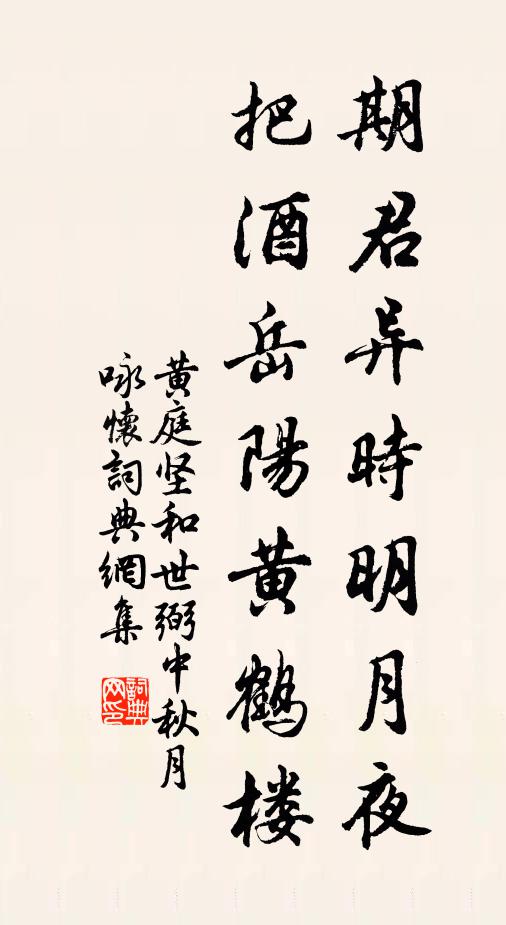 期君异時明月夜
把酒岳陽黄鶴楼
黄庭坚和世弼中秋月
咏懷詞典網集
詞典
网印